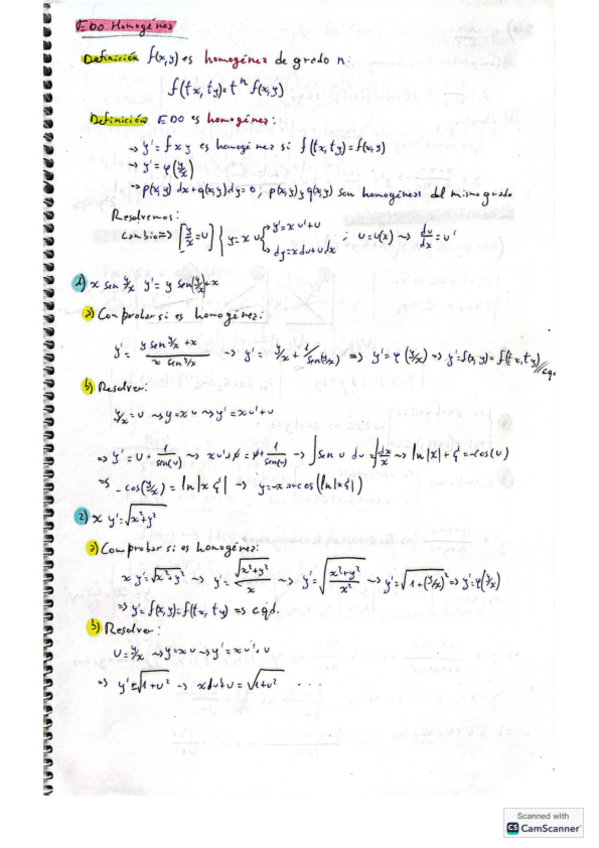 EDO Homogénea
Definición f(x,y) es homogénea de grado n:
f(tx, ty) = t^n f(x,y)
Definición EDO es homogénea:
→ y' = f x y es homogénea si f(tx, ty) = f(x,y)
→ y' = φ(y/x)
→ p(x,y) dx + q(x,y) dy = 0; p(x,y) y q(x,y) son homogéneas del mismo grado
Resolvemos:
Cambio ⇒ [y/x = u] { y = x u → y' = x u' + u ; u = u(x) → du/dx = u'
→ dy = x du + u dx
1) x sen y/x y' = y sen(y/x) + x
a) Comprobar si es homogénea:
y' = (y sen y/x + x)/(x sen y/x) → y' = y/x + 1/sen(y/x) ⇒ y' = φ(y/x) → y' = f(x,y) = f(tx, ty) // cqd.
b) Resolver:
y/x = u → y = x u → y' = x u' + u
⇒ y' = u + 1/sen(u) → x u' + u = u + 1/sen(u) → ∫ sen u du = ∫ dx/x → ln|x| + C' = -cos(u)
⇒ -cos(y/x) = ln|x C'| → y = -x arcos(ln|x C'|)
2) x y' = √(x²+y²)
a) Comprobar si es homogénea:
x y' = √(x²+y²) → y' = √(x²+y²)/x → y' = √((x²+y²)/x²) → y' = √(1+(y/x)²) ⇒ y' = φ(y/x)
⇒ y' = f(x,y) = f(tx, ty) ⇒ cqd.
b) Resolver:
u = y/x → y = x u → y' = x u' + u
⇒ y' = √(1+u²) → x u' + u = √(1+u²) ...
Scanned with
CS CamScanner